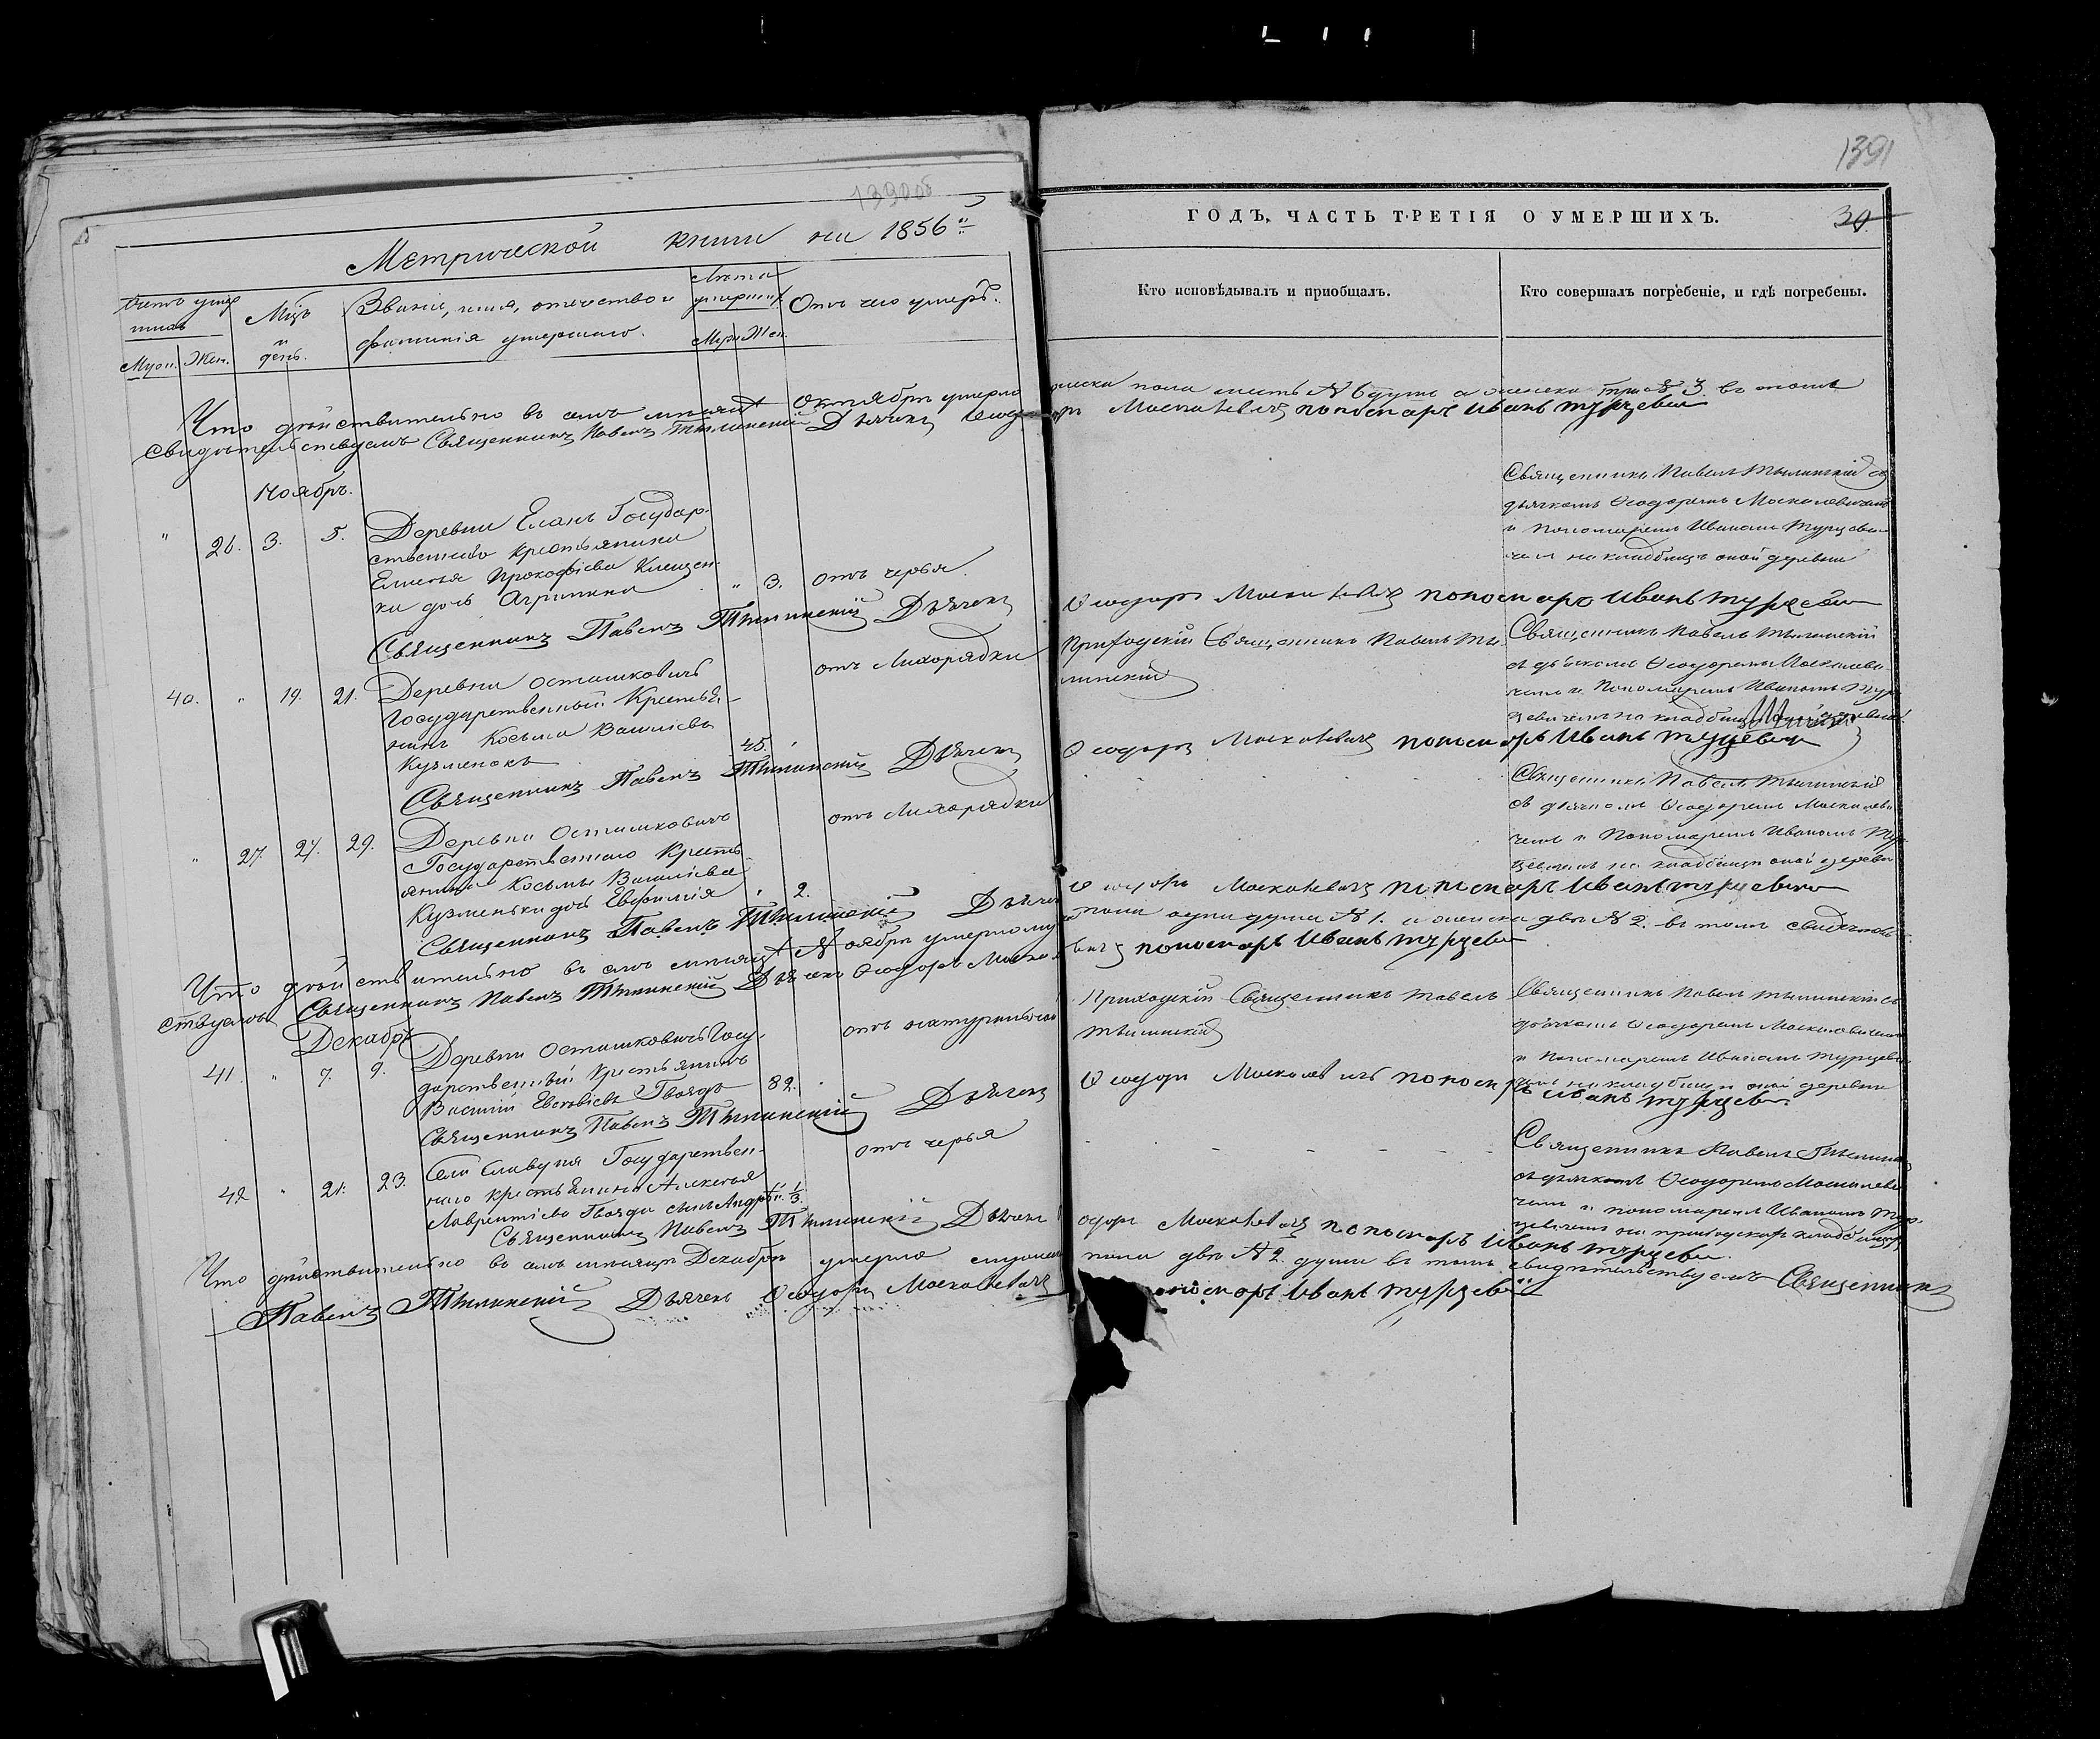 1390об
1391
Метрической книги на 1856й
ГОДЪ, ЧАСТЬ ТРЕТІЯ О УМЕРШИХЪ.
30
Счетъ умер
шихъ
Муж. Жен.
Мцъ
и
день.
Званіе, имя, отчество и
фамилія умершаго.
Лѣта
умершихъ
Муж. Жен.
Отъ чего умеръ.
Кто исповѣдывалъ и приобщалъ.
Кто совершалъ погребеніе, и гдѣ погребены.
Что дѣйствительно въ семъ мѣсяцѣ Октябрѣ умерло мужеска пола шесть № 6 душъ а женска три № 3. въ томъ
свидѣтельствуемъ Священникъ Павелъ Тыминскій Дьячекъ Ѳеодоръ Москалевичъ пономарь Иванъ Турцевич
Ноябрь.
" 26. 3. 5. Деревни Елань Государ-
ственнаго крестьянина
Елисея Прокофіева Клещен-
ки дочь Агрипина " 3. отъ червя.
Священникъ Павелъ Тыминскій
с
дьячкомъ Ѳеодоромъ Москалевичемъ
и Пономаремъ Иваномъ Турцеви-
чемъ на кладбищѣ оной деревни
Священникъ Павелъ Тыминскій Дьячекъ Ѳеодоръ Москалевичъ пономарь Иванъ Турцевич
40. " 19. 21. Деревни Осташковичъ
Государственный Крестья-
нинъ Косьма Василіевъ
Кузменокъ 45. " отъ Лихорадки
Приходскій Священникъ Павелъ Ты-
минскій
Священникъ Павелъ Тыминскій
съ дьячкомъ Ѳеодоромъ Москалеви-
чемъ и Пономаремъ Иваномъ Тур-
цевичемъ на кладбищѣ оной деревни
Священникъ Павелъ Тыминскій Дьячекъ Ѳеодоръ Москалевичъ пономарь Иванъ Турцевич
" 27. 27. 29. Деревни Осташковичъ
Государственнаго Кресть-
янина Косьмы Василіева
Кузменьки дочь Евфимія " 2. отъ Лихорадки
Священникъ Павелъ Тыминскій
съ дьячкомъ Ѳеодоромъ Москалеви-
чемъ и Пономаремъ Иваномъ Тур-
цевичемъ на кладбищѣ оной деревни
Священникъ Павелъ Тыминскій Дьячекъ Ѳеодоръ Москалевичъ пономарь Иванъ Турцевич
Что дѣйствительно въ семъ мѣсяцѣ Ноябрѣ умерло муж. пола одна душа № 1. а женска двѣ № 2. въ томъ свидѣтель-
ствуемъ Священникъ Павелъ Тыминскій Дьячекъ Ѳеодоръ Москалевичъ пономарь Иванъ Турцевич
Декабрь
41. " 7. 9. Деревни Осташковичъ Госу-
дарственный Крестьянинъ
Василій Евсѣвіевъ Гвоздь 82. " отъ натуральной
Приходскій Священникъ Павелъ
Тыминскій
Священникъ Павелъ Тыминскій съ
дьячкомъ Ѳеодоромъ Москалевичемъ
и Пономаремъ Иваномъ Турцеви-
чемъ на кладбищѣ оной деревни
Священникъ Павелъ Тыминскій Дьячекъ Ѳеодоръ Москалевичъ пономарь Иванъ Турцевич.
42 " 21. 23. Села Славуня Государствен-
наго крестьянина Алексея
Лаврентіева Гвозда сынъ Андрей 1/3. отъ червя
Священникъ Павелъ Тыминскій
съ дьячкомъ Ѳеодоромъ Москалеви-
чемъ и пономаремъ Иваномъ Тур-
цевичемъ на приходскомъ кладбищѣ
Священникъ Павелъ Тыминскій Дьячекъ Ѳеодоръ Москалевичъ пономарь Иванъ Турцевич.
Что дѣйствительно въ семъ мѣсяцѣ Декабрѣ умерло мужеска пола двѣ № 2. души въ томъ свидѣтельствуемъ Священникъ
Павелъ Тыминскій Дьячекъ Ѳеодоръ Москалевичъ пономарь Иванъ Турцевич